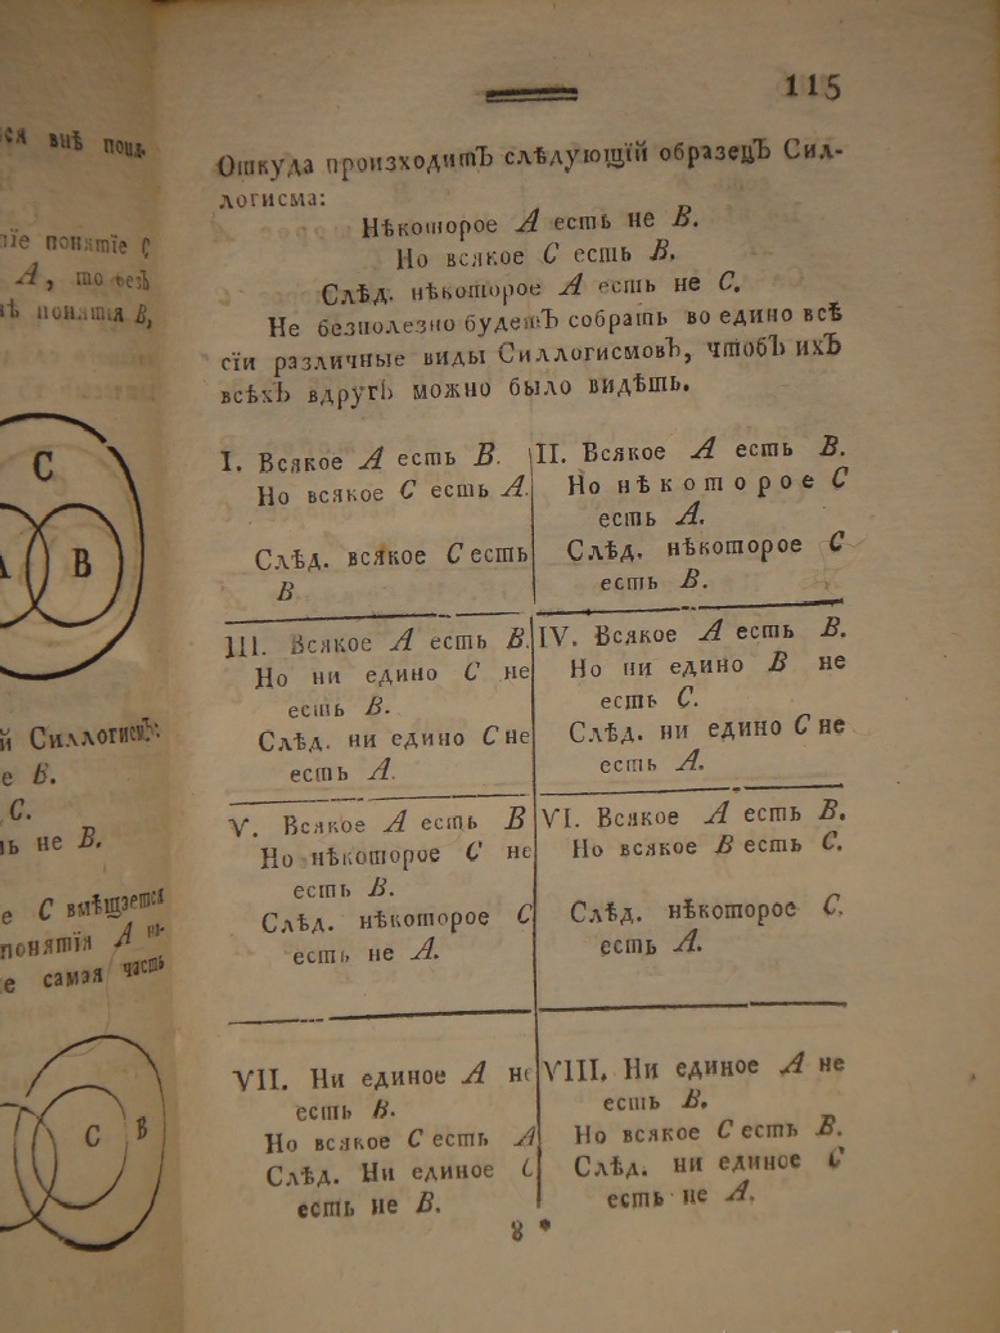 ся внѣ понл.
пїе понятїе C
A, то безъ
нѣ понятїя B,
C
A B
й Силлогисмъ:
е B.
C.
ть не B.
е C вмѣщается
понятїя A на-
е самая часть
C B
115
Откуда произходитъ слѣдующїй образецъ Сил-
логисма:
Нѣкоторое A есть не B.
Но всякое C есть B.
Слѣд. нѣкоторое A есть не C.
Не безполезно будетъ собрать во едино всѣ
сїи различные виды Силлогисмовъ, чтобъ ихъ
всѣхъ вдругъ можно было видѣть.
I. Всякое A есть B.
Но всякое C есть A.
Слѣд. всякое C есть
B
II. Всякое A есть B.
Но нѣкоторое C
есть A.
Слѣд. нѣкоторое C
есть B.
III. Всякое A есть B.
Но ни едино C не
есть B.
Слѣд. ни едино C не
есть A.
IV. Всякое A есть B.
Но ни едино B не
есть C.
Слѣд. ни едино C не
есть A.
V. Всякое A есть B
Но нѣкоторое C не
есть B.
Слѣд. нѣкоторое C
есть не A.
VI. Всякое A есть B.
Но всякое B есть C.
Слѣд. нѣкоторое C.
есть A.
VII. Ни единое A не
есть B.
Но всякое C есть A
Слѣд. Ни единое C
есть не B.
VIII. Ни единое A не
есть B.
Но всякое C есть B.
Слѣд. ни единое C
есть не A.
8 *